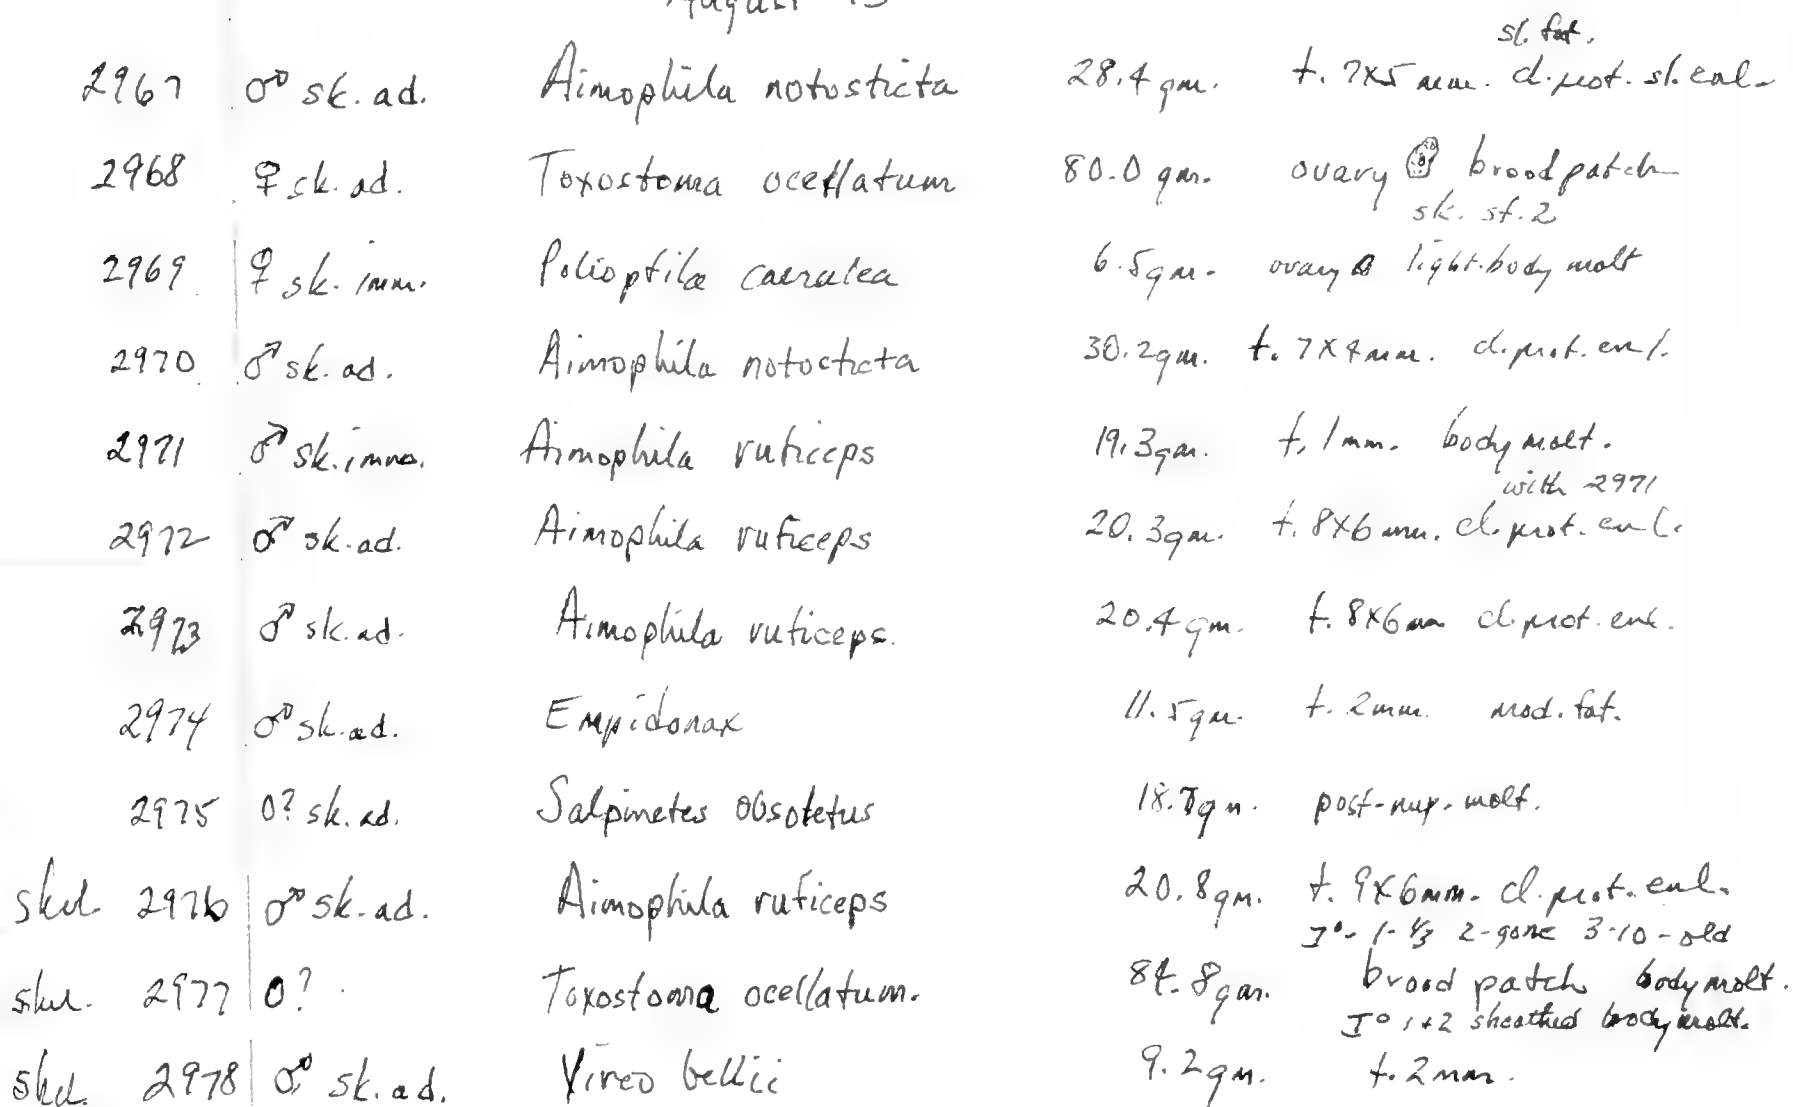 August 13
sl. fat.
2967 ♂ sk. ad. Aimophila notosticta 28.4 gm. t. 7x5 mm. cl. prot. sl. enl.
2968 ♀ sk. ad. Toxostoma ocellatum 80.0 gm. ovary brood patch
sk. st. 2
2969 ♀ sk. imm. Polioptila caerulea 6.5 gm. ovary light body molt
2970 ♂ sk. ad. Aimophila notosticta 30.2 gm. t. 7x4 mm. cl. prot. enl.
2971 ♂ sk. imm. Aimophila ruficeps 19.3 gm. t. 1 mm. body molt.
with 2971
2972 ♂ sk. ad. Aimophila ruficeps 20.3 gm. t. 8x6 mm. cl. prot. enl.
2973 ♂ sk. ad. Aimophila ruficeps. 20.4 gm. t. 8x6 mm cl. prot. enl.
2974 ♂ sk. ad. Empidonax 11.5 gm. t. 2 mm. mod. fat.
2975 O? sk. ad. Salpinctes obsoletus gm. post-nup. molt.
skel. 2976 ♂ sk. ad. Aimophila ruficeps 20.8 gm. t. 9x6 mm. cl. prot. enl.
I°- 1-⅓ 2-gone 3-10-old
skel. 2977 O? Toxostoma ocellatum. 84.8 gm. brood patch body molt.
I° 1+2 sheathed body molt.
skel. 2978 ♂ sk. ad. Vireo bellii 9.2 gm. t. 2 mm.